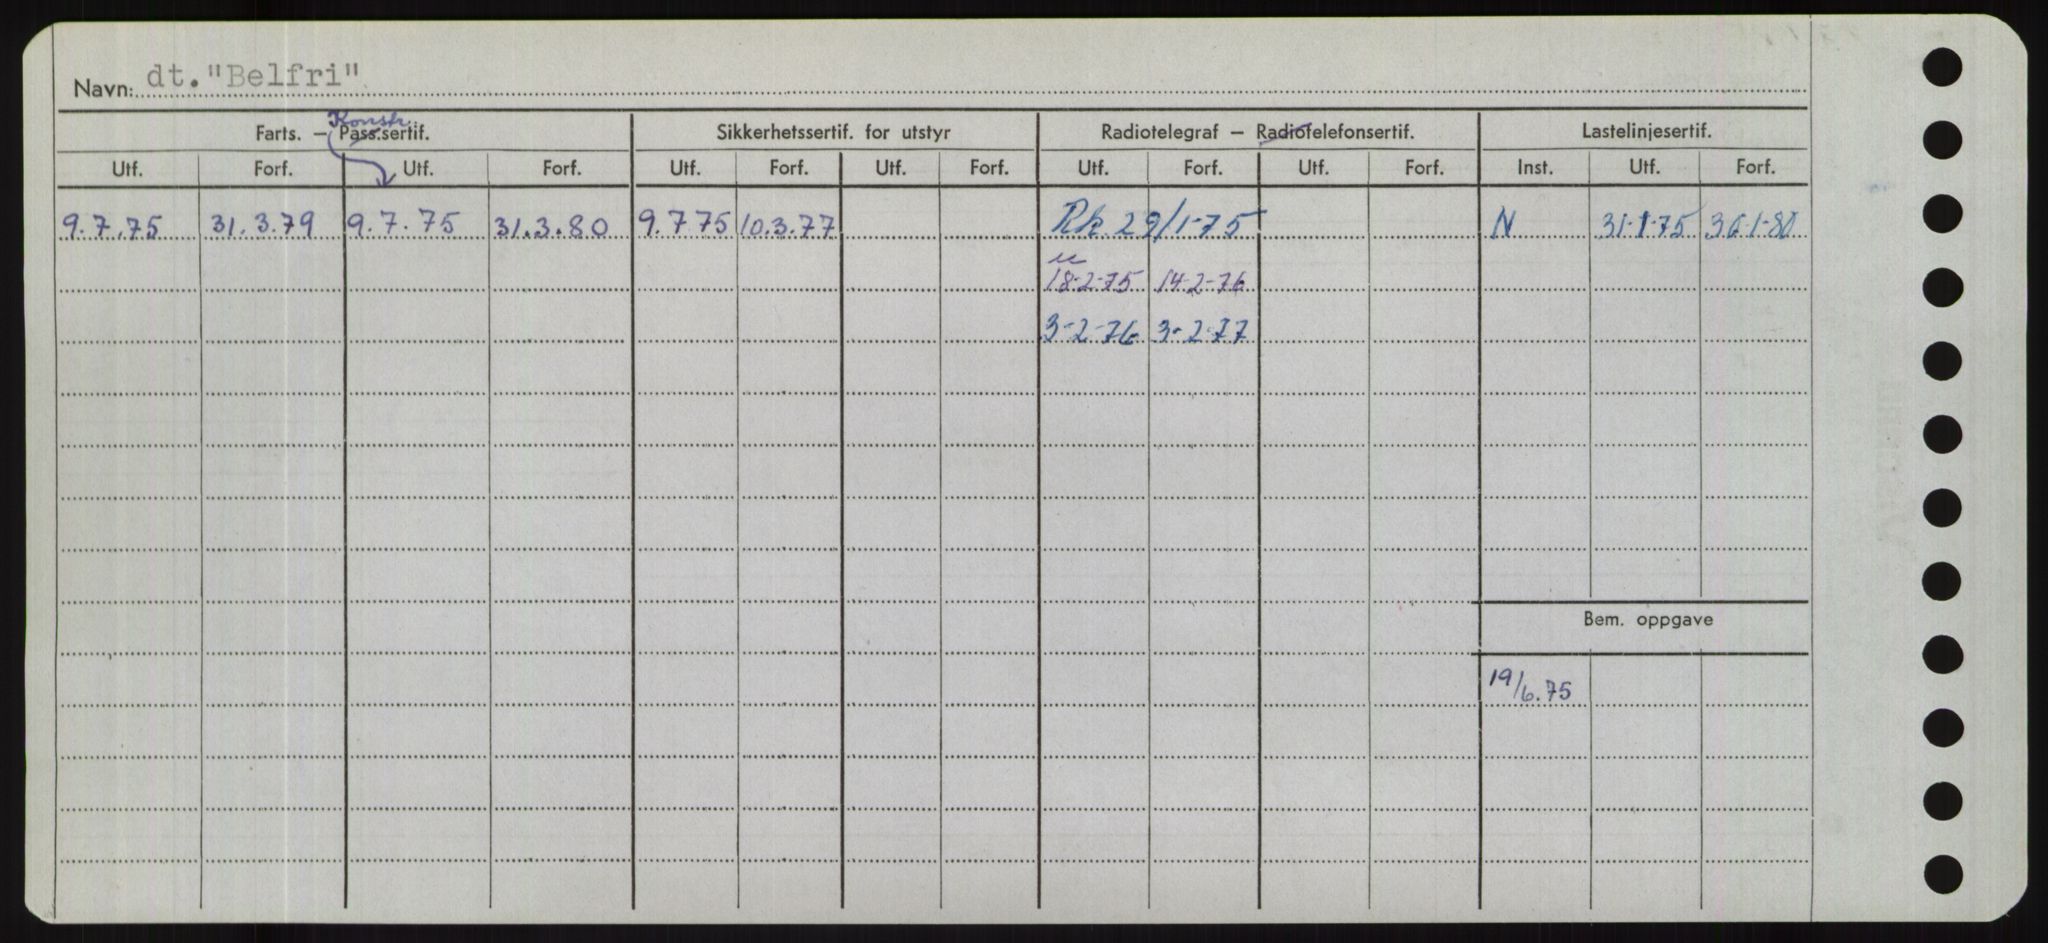 Navn: dt. "Belfri"
Konstr.
Farts. – Pass.sertif. Sikkerhetssertif. for utstyr Radiotelegraf – Radiotelefonsertif. Lastelinjesertif.
Utf. Forf. Utf. Forf. Utf. Forf. Utf. Forf. Utf. Forf. Utf. Forf. Inst. Utf. Forf.
9.7.75 31.3.79 9.7.75 31.3.80 9.7 75 10.3.77 Rk 29/1-75 N 31-1-75 30-1-80
18-2-75 14-2-76
3-2-76 3-2-77
Bem. oppgave
19/6.75